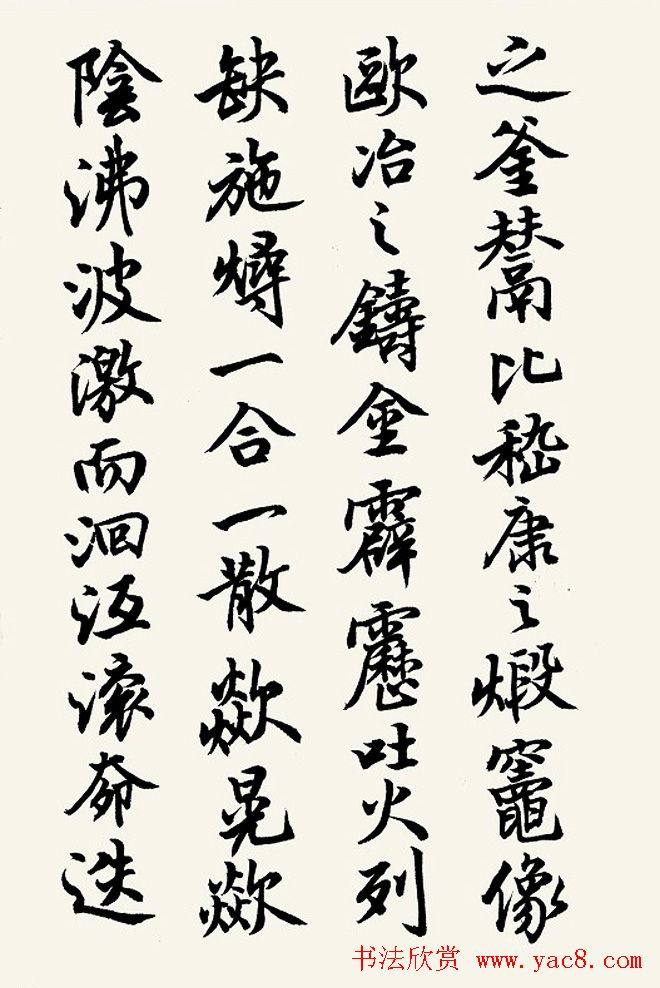 之釜鬵比嵇康之煅竈像
歐冶之鑄金霹靂吐火列
缺施燖一合一散歘晃歘
陰沸波激而洄沍滾奅迭
书法欣赏 www.yac8.com